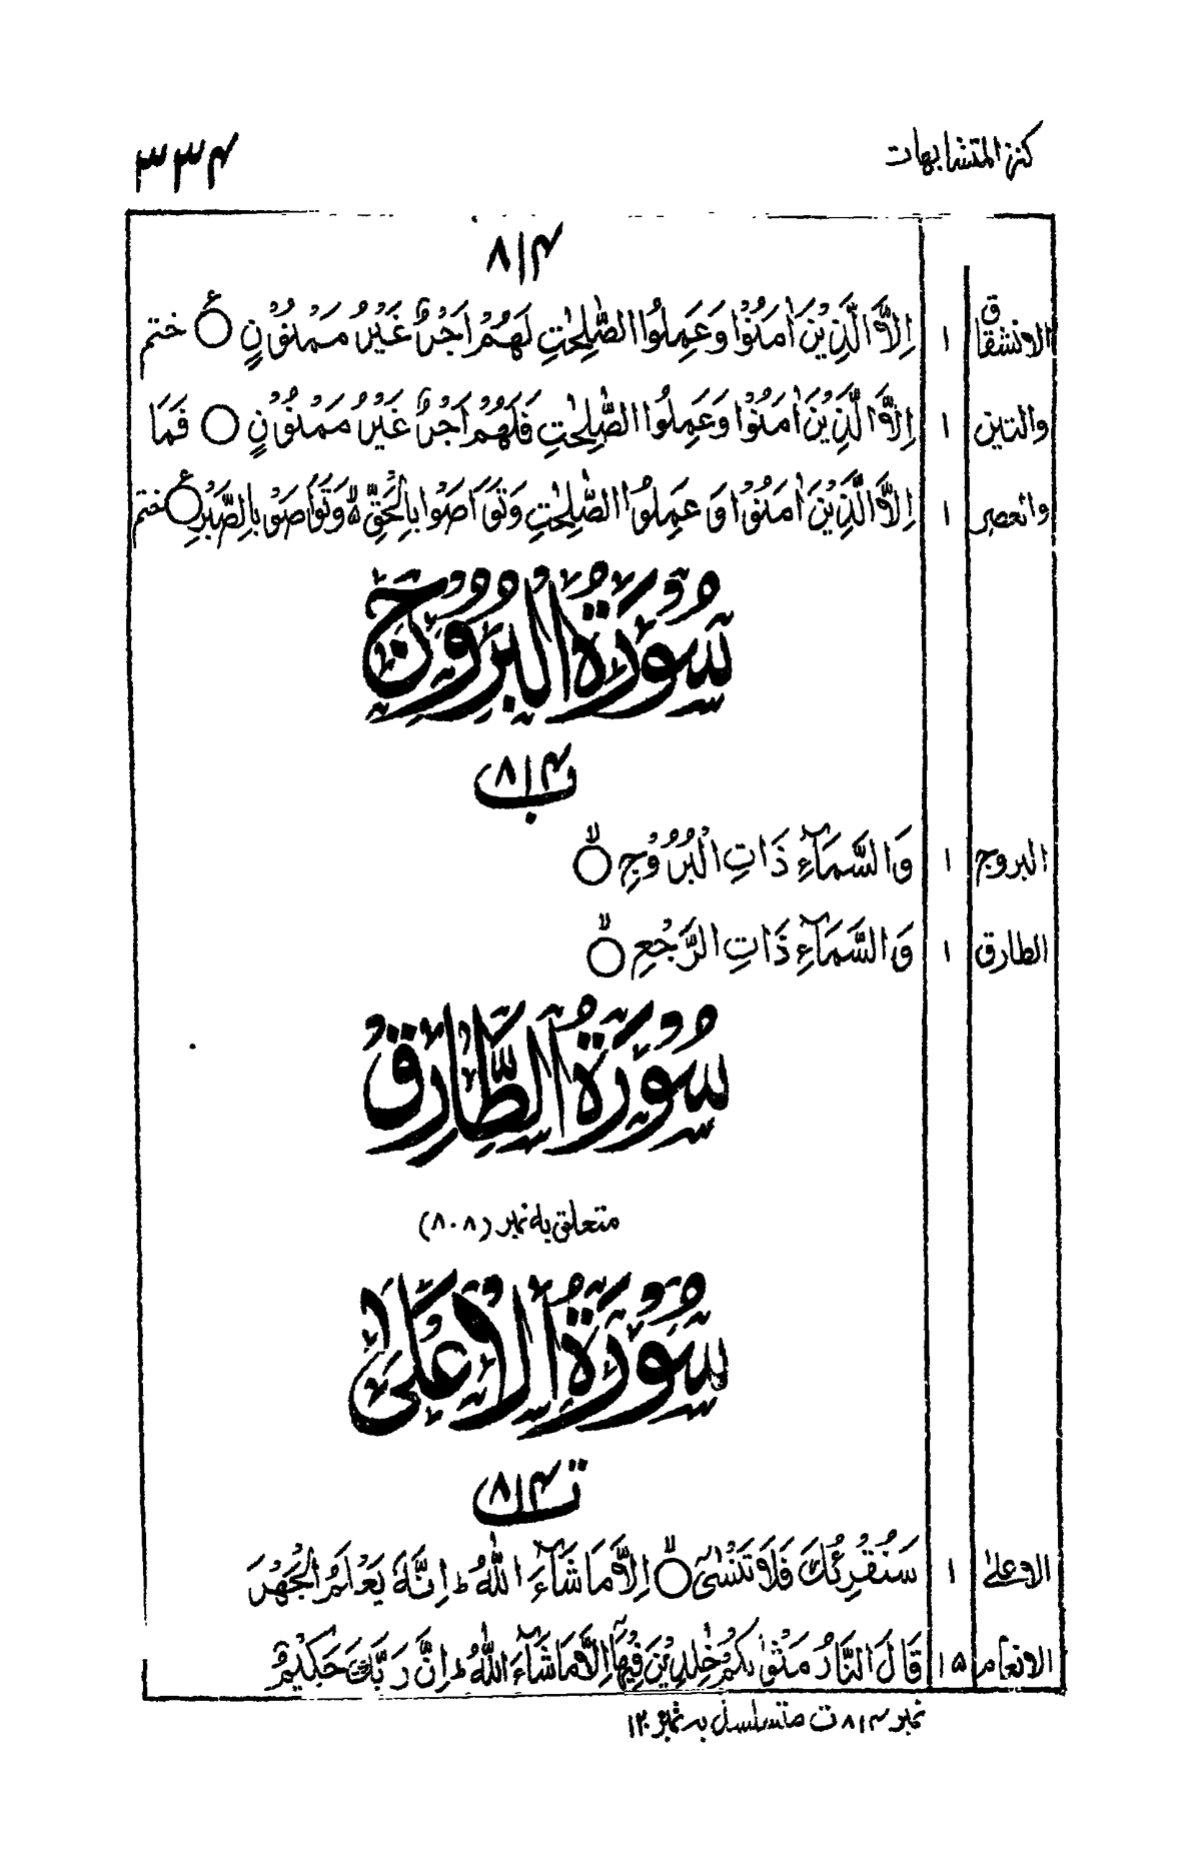 كنز المتشابهات
۳۳۴
۸۱۴
الانشقاق ۱ اِلَّا الَّذِيْنَ اٰمَنُوْا وَعَمِلُوا الصّٰلِحٰتِ لَهُمْ اَجْرٌ غَيْرُ مَمْنُوْنٍ ○ ع ختم
والتين ۱ اِلَّا الَّذِيْنَ اٰمَنُوْا وَعَمِلُوا الصّٰلِحٰتِ فَلَهُمْ اَجْرٌ غَيْرُ مَمْنُوْنٍ ○ فَمَا
والعصر ۱ اِلَّا الَّذِيْنَ اٰمَنُوْا وَ عَمِلُوا الصّٰلِحٰتِ وَتَوَاصَوْا بِالْحَقِّ ۙ وَتَوَاصَوْا بِالصَّبْرِ ○ ع ختم
سُوْرَةُ الْبُرُوْجِ
۸۱۴ ب
البروج ۱ وَالسَّمَآءِ ذَاتِ الْبُرُوْجِ ○ ۙ
الطارق ۱ وَالسَّمَآءِ ذَاتِ الرَّجْعِ ○ ۙ
سُوْرَةُ الطَّارِقِ
متعلق بہ نمبر (۸۰۸)
سُوْرَةُ الْاَعْلٰى
۸۱۴ ت
الاعلىٰ ۱ سَنُقْرِئُكَ فَلَا تَنْسٰىٓ ○ ۙ اِلَّا مَا شَآءَ اللّٰهُ ؕ اِنَّهٗ يَعْلَمُ الْجَهْرَ
الانعام ۱۵ قَالَ النَّارُ مَثْوٰىكُمْ خٰلِدِيْنَ فِيْهَآ اِلَّا مَا شَآءَ اللّٰهُ ؕ اِنَّ رَبَّكَ حَكِيْمٌ
نمبر ۸۱۴ ت متسلسل بہ نمبر ۱۲۰